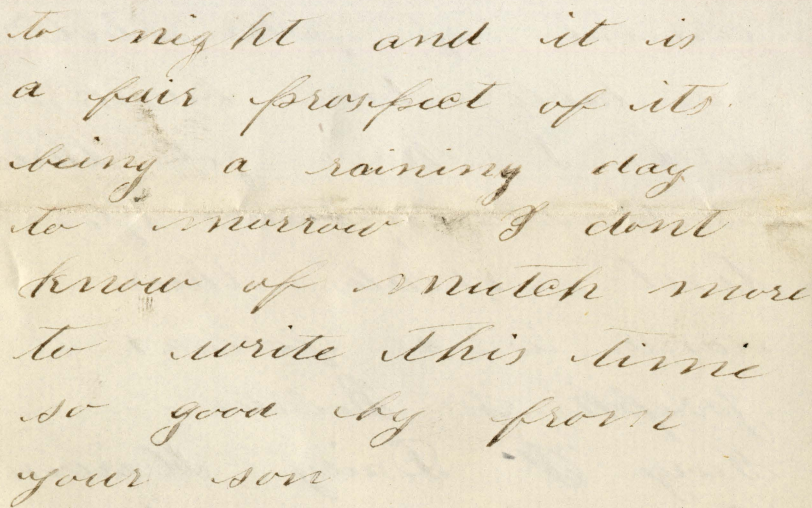 to night and it is
a fair prospect of its
being a raining day
to morrow I dont
know of mutch more
to write this time
so good by from
your son